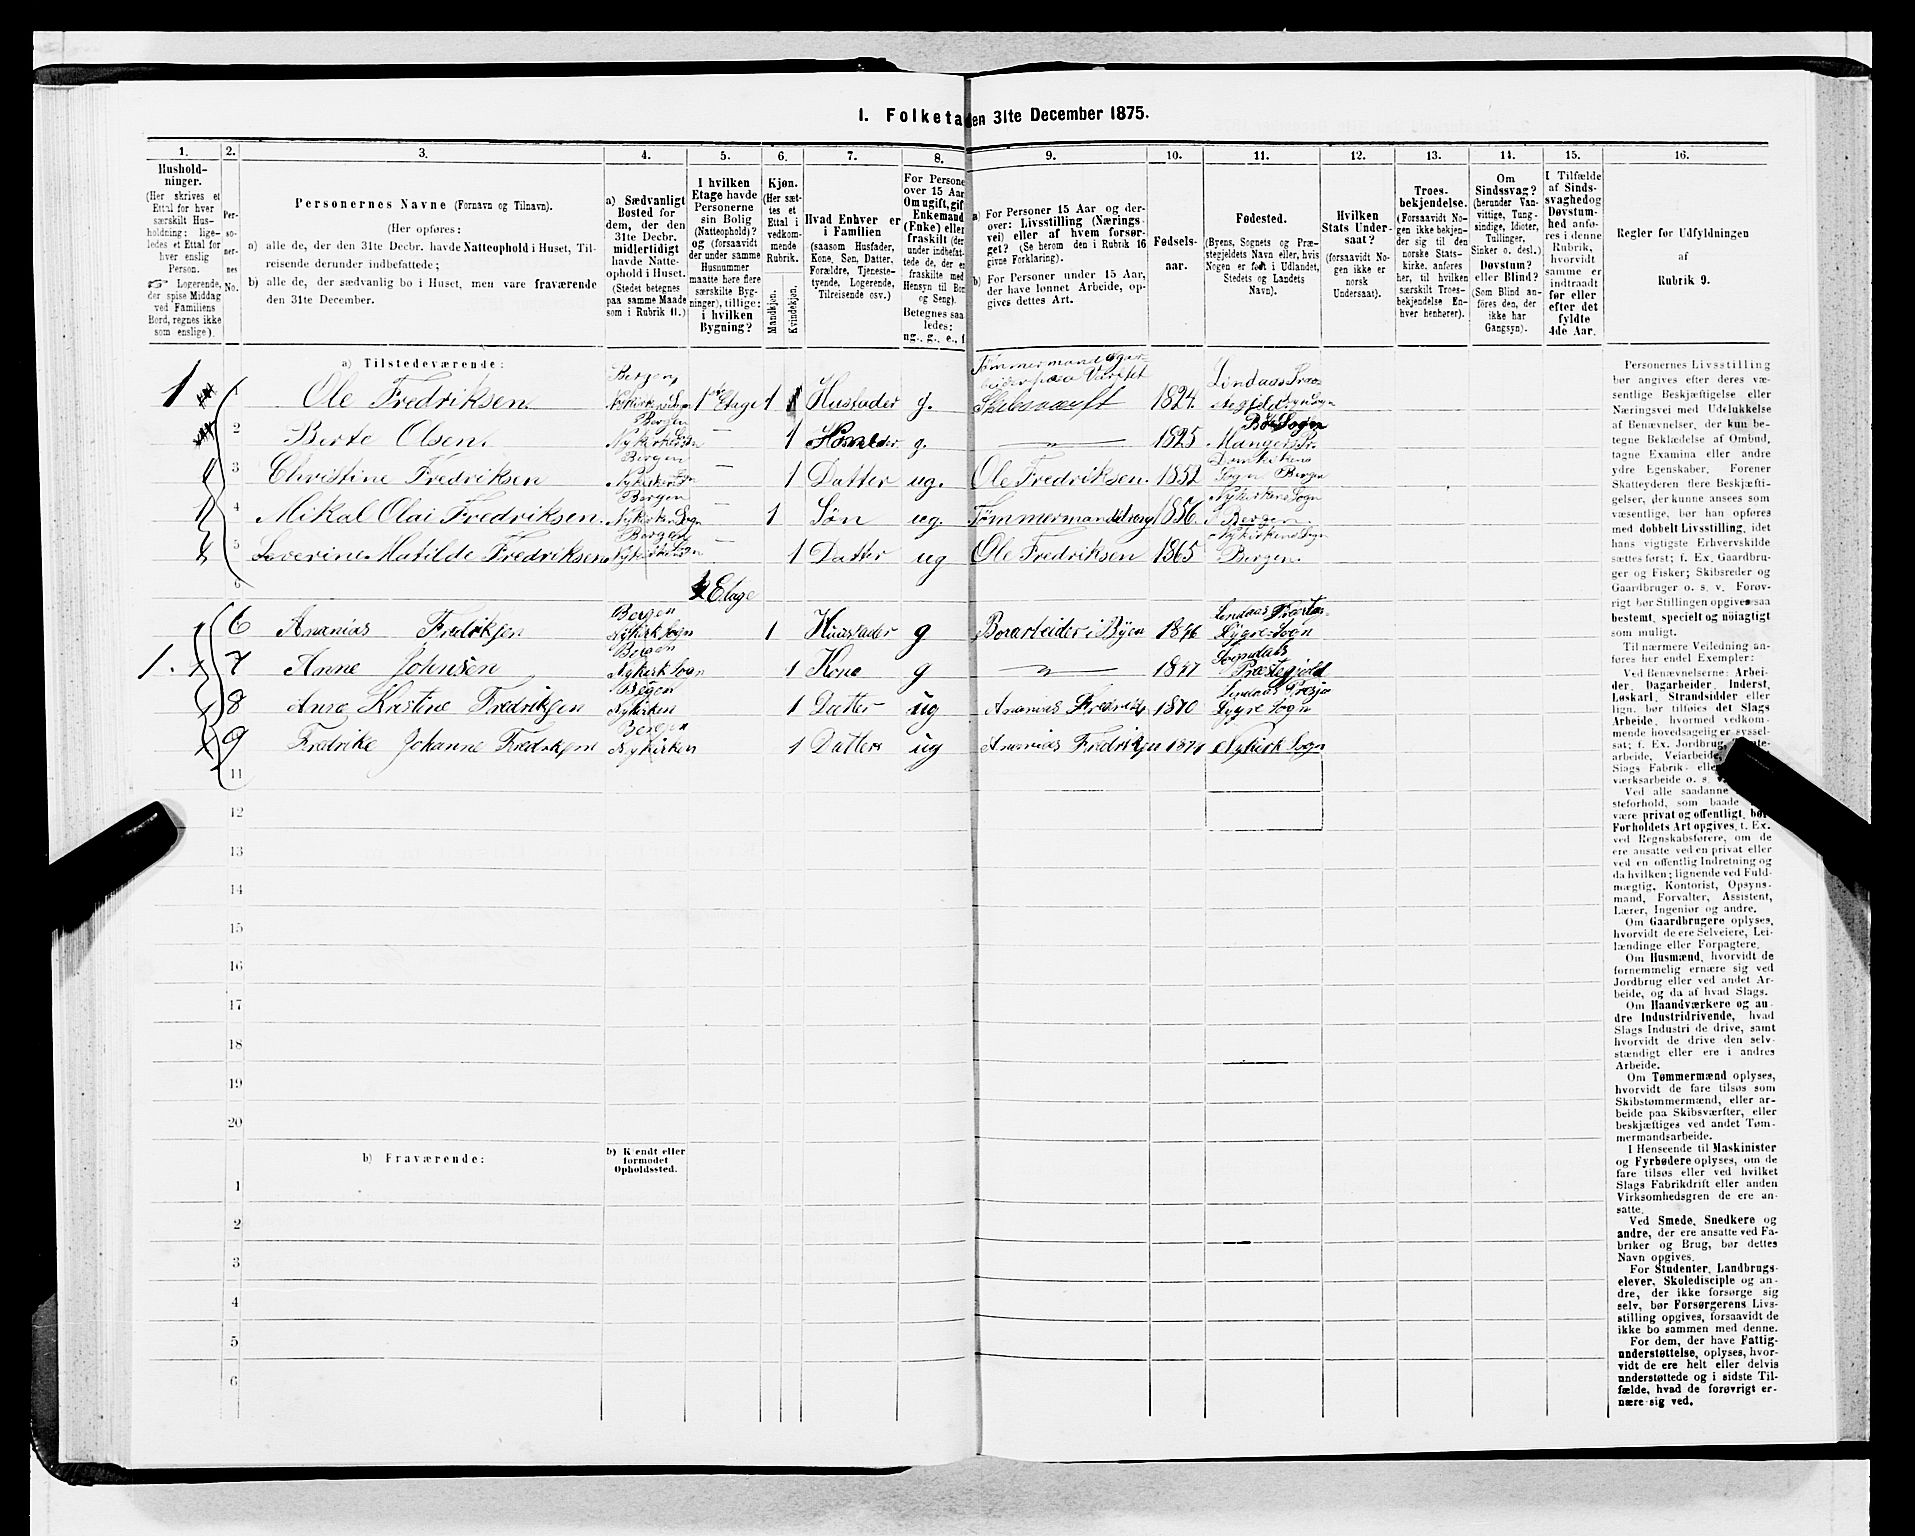 I. Folketa en 31te December 1875.
1. 2. 3. 4. 5. 6. 7. 8. 9. 10. 11. 12. 13. 14. 15. 16.
Hushold-
ninger.
(Her skrives et
Ettal for hver
særskilt Hus-
holdning; lige-
ledes et Ettal for
hver enslig
Person.
Logerende,
der spise Middag
ved Familiens
Bord, regnes ikke
som enslige).
Per-
so-
ner-
nes
No.
Personernes Navne (Fornavn og Tilnavn).
(Her opføres:
a) alle de, der den 31te Decbr. havde Natteophold i Huset, Til-
reisende derunder indbefattede;
b) alle de, der sædvanlig bo i Huset, men vare fraværende
den 31te December.
a) Sædvanligt
Bosted for
dem, der den
31te Decbr.
midlertidigt
havde Natte-
ophold i Huset.
(Stedet betegnes
paa samme Maade
som i Rubrik 11.)
I hvilken
Etage havde
Personerne
sin Bolig
(Natteophold)?
og (forsaavidt
der under samme
Husnummer
maatte høre flere
særskilte Byg-
ninger), tillige:
i hvilken
Bygning?
Kjøn.
(Her sæt-
tes et
Ettal i
vedkom-
mende
Rubrik.
Mandkjøn.
Kvindekjøn.
Hvad Enhver er
i Familien
(saasom Husfader,
Kone, Søn, Datter,
Forældre, Tjeneste-
tyende, Logerende,
Tilreisende osv.)
For Persone
over 15 Aar
Om ugift, gif
Enkemand
(Enke) eller
fraskilt (der
under indbefat-
tede de, der er
fraskilte med
Hensyn til Bor
og Seng).
Betegnes saa
ledes:
ug., g., e., f
a) For Personer 15 Aar og der-
over: Livsstilling (Nærings-
vei) eller af hvem forsør-
get? (Se herom den i Rubrik 16
givne Forklaring).
b) For Personer under 15 Aar,
der have lønnet Arbeide, op-
gives dettes Art.
Fødsels-
aar.
Fødested.
(Byens, Sognets og Præ-
stegjeldets Navn eller, hvis
Nogen er født i Udlandet,
Stedets og Landets
Navn).
Hvilken
Stats Under-
saat?
(forsaavidt No-
gen ikke er
norsk
Undersaat).
Troes-
bekjendelse.
(Forsaavidt No-
gen ikke bekjen-
der sig til den
norske Stats-
kirke, anføres
her, til hvilken
særskilt Troes-
bekjendelse En-
hver henhører).
Om
Sindssvag?
(herunder Van-
vittige, Tung-
sindige, Idioter,
Tullinger,
Sinker o. desl.)
Døvstum?
eller Blind?
(Som Blind an-
føres den, der
ikke har
Gangsyn).
I Tilfælde
af Sinds-
svaghed og
Døvstum-
hed anfø-
res i denne
Rubrik,
hvorvidt
samme er
indtraadt
før eller
efter det
fyldte
4de Aar.
Regler for Udfyldningen
af
Rubrik 9.
a) Tilstedeværende:
1 1 Ole Fredriksen Bergen Nykirkens Sogn 1ste Etage 1 Husfader g. Skibsværft 1824.
2 Berte Olsen. Bergen 1 g. 1825 Manger
3 Christine Fredriksen Bergen 1 Datter ug. Ole Fredriksen. 1852 Domkirkens Sogn Bergen
4 Mikal Olai Fredriksen. Bergen Nykirken Sogn 1 Søn ug. Tømmermandsdreng 1856 Nykirkens Sogn Bergen.
5 Severine Matilde Fredriksen Bergen 1 Datter ug Ole Fredriksen 1865 Nykirkens Sogn Bergen.
6 2 Etage
6 Ananias Fredriksen Bergen Nykirk Sogn 1 Huusfader g Borarbeider i Byen 1846
1. 7 Anne Johnsen Bergen Nykirk Sogn 1 Kone g Sogndals Præstegjeld
8 Ane Kristine Fredriksen Bergen Nykirken 1 Datter ug Ananias Fredriks 1870 Lygre Sogn
9 Fredrike Johanne Fredriksen Bergen Nykirken 1 Datter ug Ananias Fredriksen Nykirk Sogn
11
12
13
14
15
16
17
18
19
20
b) Fraværende:
b) Kjendt eller
formodet
Opholdssted.
1
2
3
4
5
6
Personernes Livsstilling
bør angives efter deres væ-
sentlige Beskjæftigelse eller
Næringsvei med Udelukkelse
af Benævnelser, der kun be-
tegne Beklædelse af Ombud,
tagne Examina eller andre
ydre Egenskaber. Forener
Skatteyderen flere Beskjæfti-
gelser, der kunne ansees som
væsentlige, bør han opføres
med dobbelt Livsstilling, idet
hans vigtigste Erhvervskilde
sættes først; f. Ex. Gaardbru-
ger og Fisker; Skibsreder og
Gaardbruger o. s. v. Forøv-
rigt bør Stillingen opgives saa
bestemt, specielt og nøiagtigt
som muligt.
Til nærmere Veiledning an-
føres her endel Exempler:
Ved Benævnelserne: Arbei-
der, Dagarbeider, Inderst,
Løskarl, Strandsidder eller
lign. bør tilføies det Slags
Arbeide, hvormed vedkom-
mende hovedsagelig er syssel-
sat; f. Ex. Jordbrug,
arbeide, Veiarbeide,
Slags Fabrik- elle
værksarbeide o. s.
Ved alle saadanne
steforhold, som baade
være privat og offentligt, bør
Forholdets Art opgives, t. Ex.
ved Regnskabsførere, om de
ere ansatte ved en privat eller
ved en offentlig Indretning og
da hvilken; lignende ved Fuld-
mægtig, Kontorist, Opsyns-
mand, Forvalter, Assistent,
Lærer, Ingeniør og andre.
Om Gaardbrugere oplyses,
hvorvidt de ere Selveiere, Lei-
lændinge eller Forpagtere.
Om Husmænd, hvorvidt de
fornemmelig ernære sig ved
Jordbrug eller ved andet Ar-
beide, og da af hvad Slags.
Om Haandværkere og an-
dre Industridrivende, hvad
Slags Industri de drive, samt
hvorvidt de drive den selv-
stændigt eller ere i andres
Arbeide.
Om Tømmermænd oplyses,
hvorvidt de fare tilsøs som
Skibstømmermænd, eller ar-
beide paa Skibsværfter, eller
beskjæftiges ved andet Tøm-
mermandsarbeide.
I Henseende til Maskinister
og Fyrbødere oplyses, om de
fare tilsøs eller ved hvilket
Slags Fabrikdrift eller anden
Virksomhedsgren de ere an-
satte.
Ved Smede, Snedkere og
andre, der ere ansatte ved Fa-
briker og Brug, bør dettes
Navn opgives.
For Studenter, Landbrugs-
elever, Skoledisciple og an-
dre, der ikke forsørge sig
selv, bør Forsørgerens Livs-
stilling opgives, forsaavidt de
ikke bo sammen med denne.
For dem, der have Fattig-
understøttelse, oplyses, hvor-
vidt de ere helt eller delvis
understøttede og i sidste Til-
fælde, hvad de forøvrigt er-
nære sig ved.